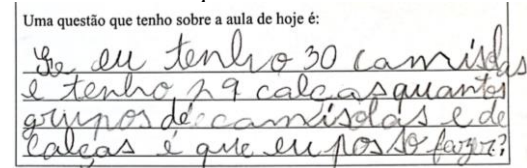 Uma questão que tenho sobre a aula de hoje é:
Se eu tenho 30 camisolas
e tenho 29 calças quantos
grupos de camisolas e de
calças é que eu posso fazer?